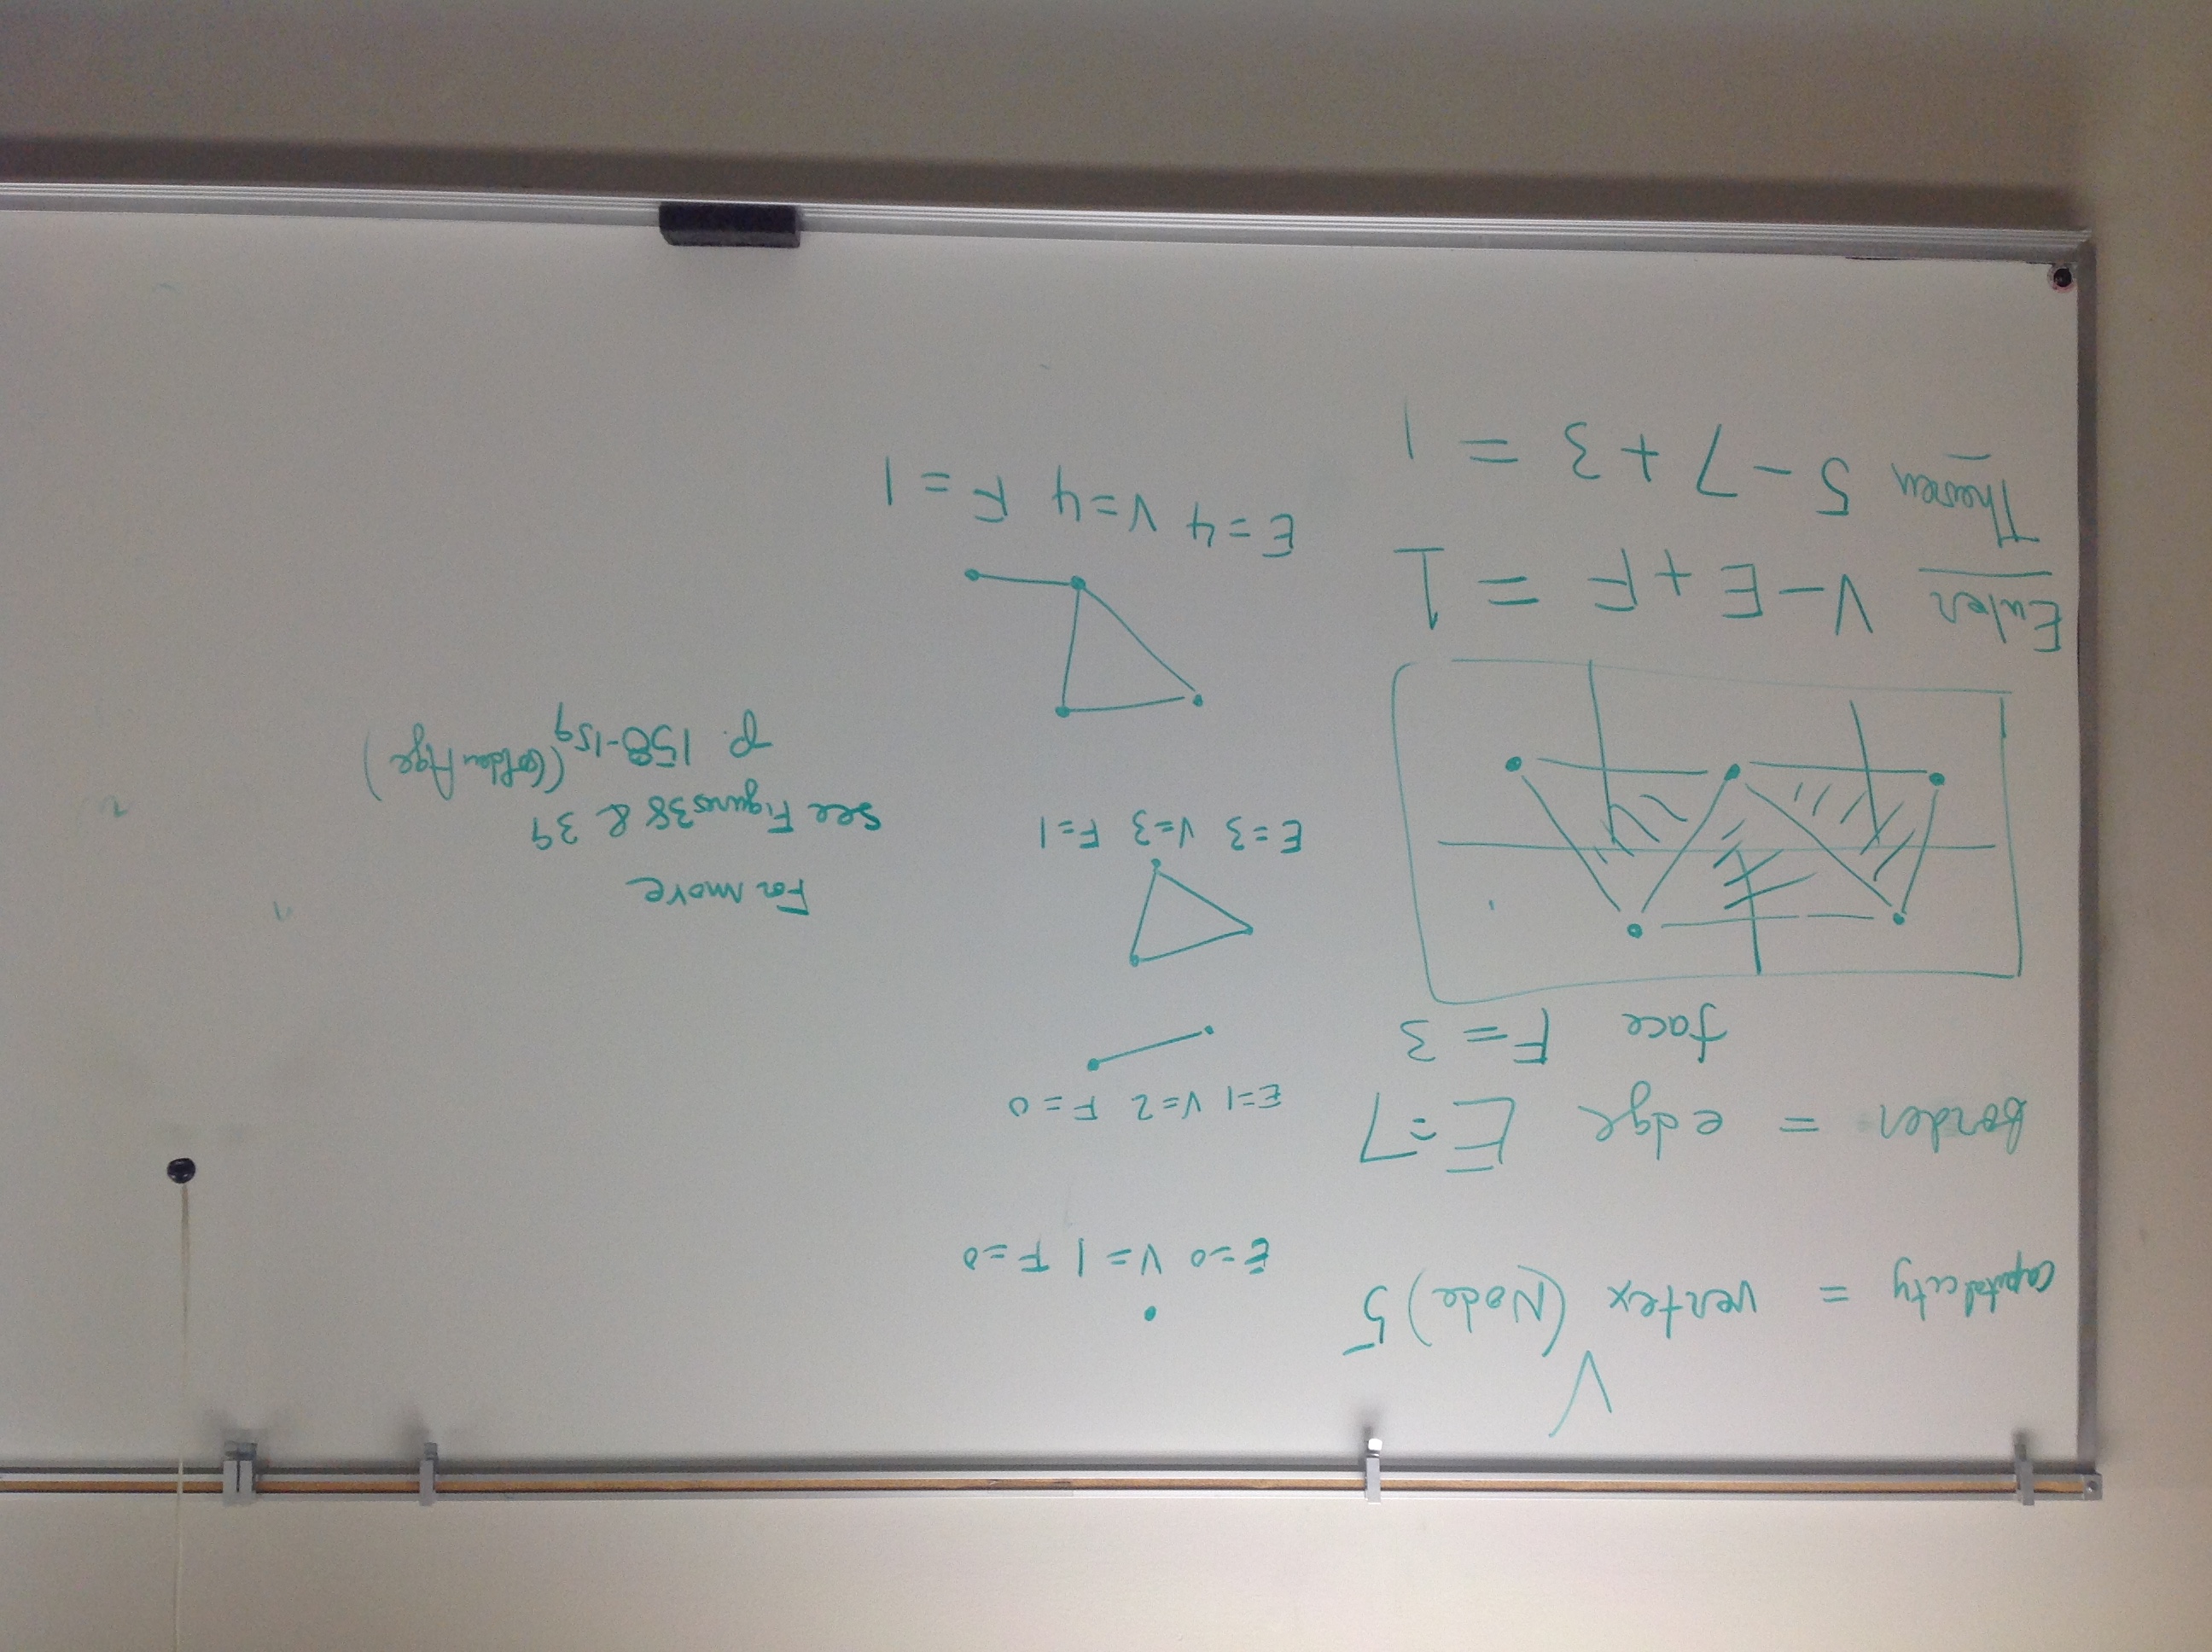 V
capital city = vertex (Node) 5
border = edge E=7
face F=3
Euler V-E+F = 1
Theorem 5-7+3 = 1
E=0 V=1 F=0
E=1 V=2 F=0
E=3 V=3 F=1
E=4 V=4 F=1
For more
see Figures 38 & 39
p. 158-159 (Golden Age)